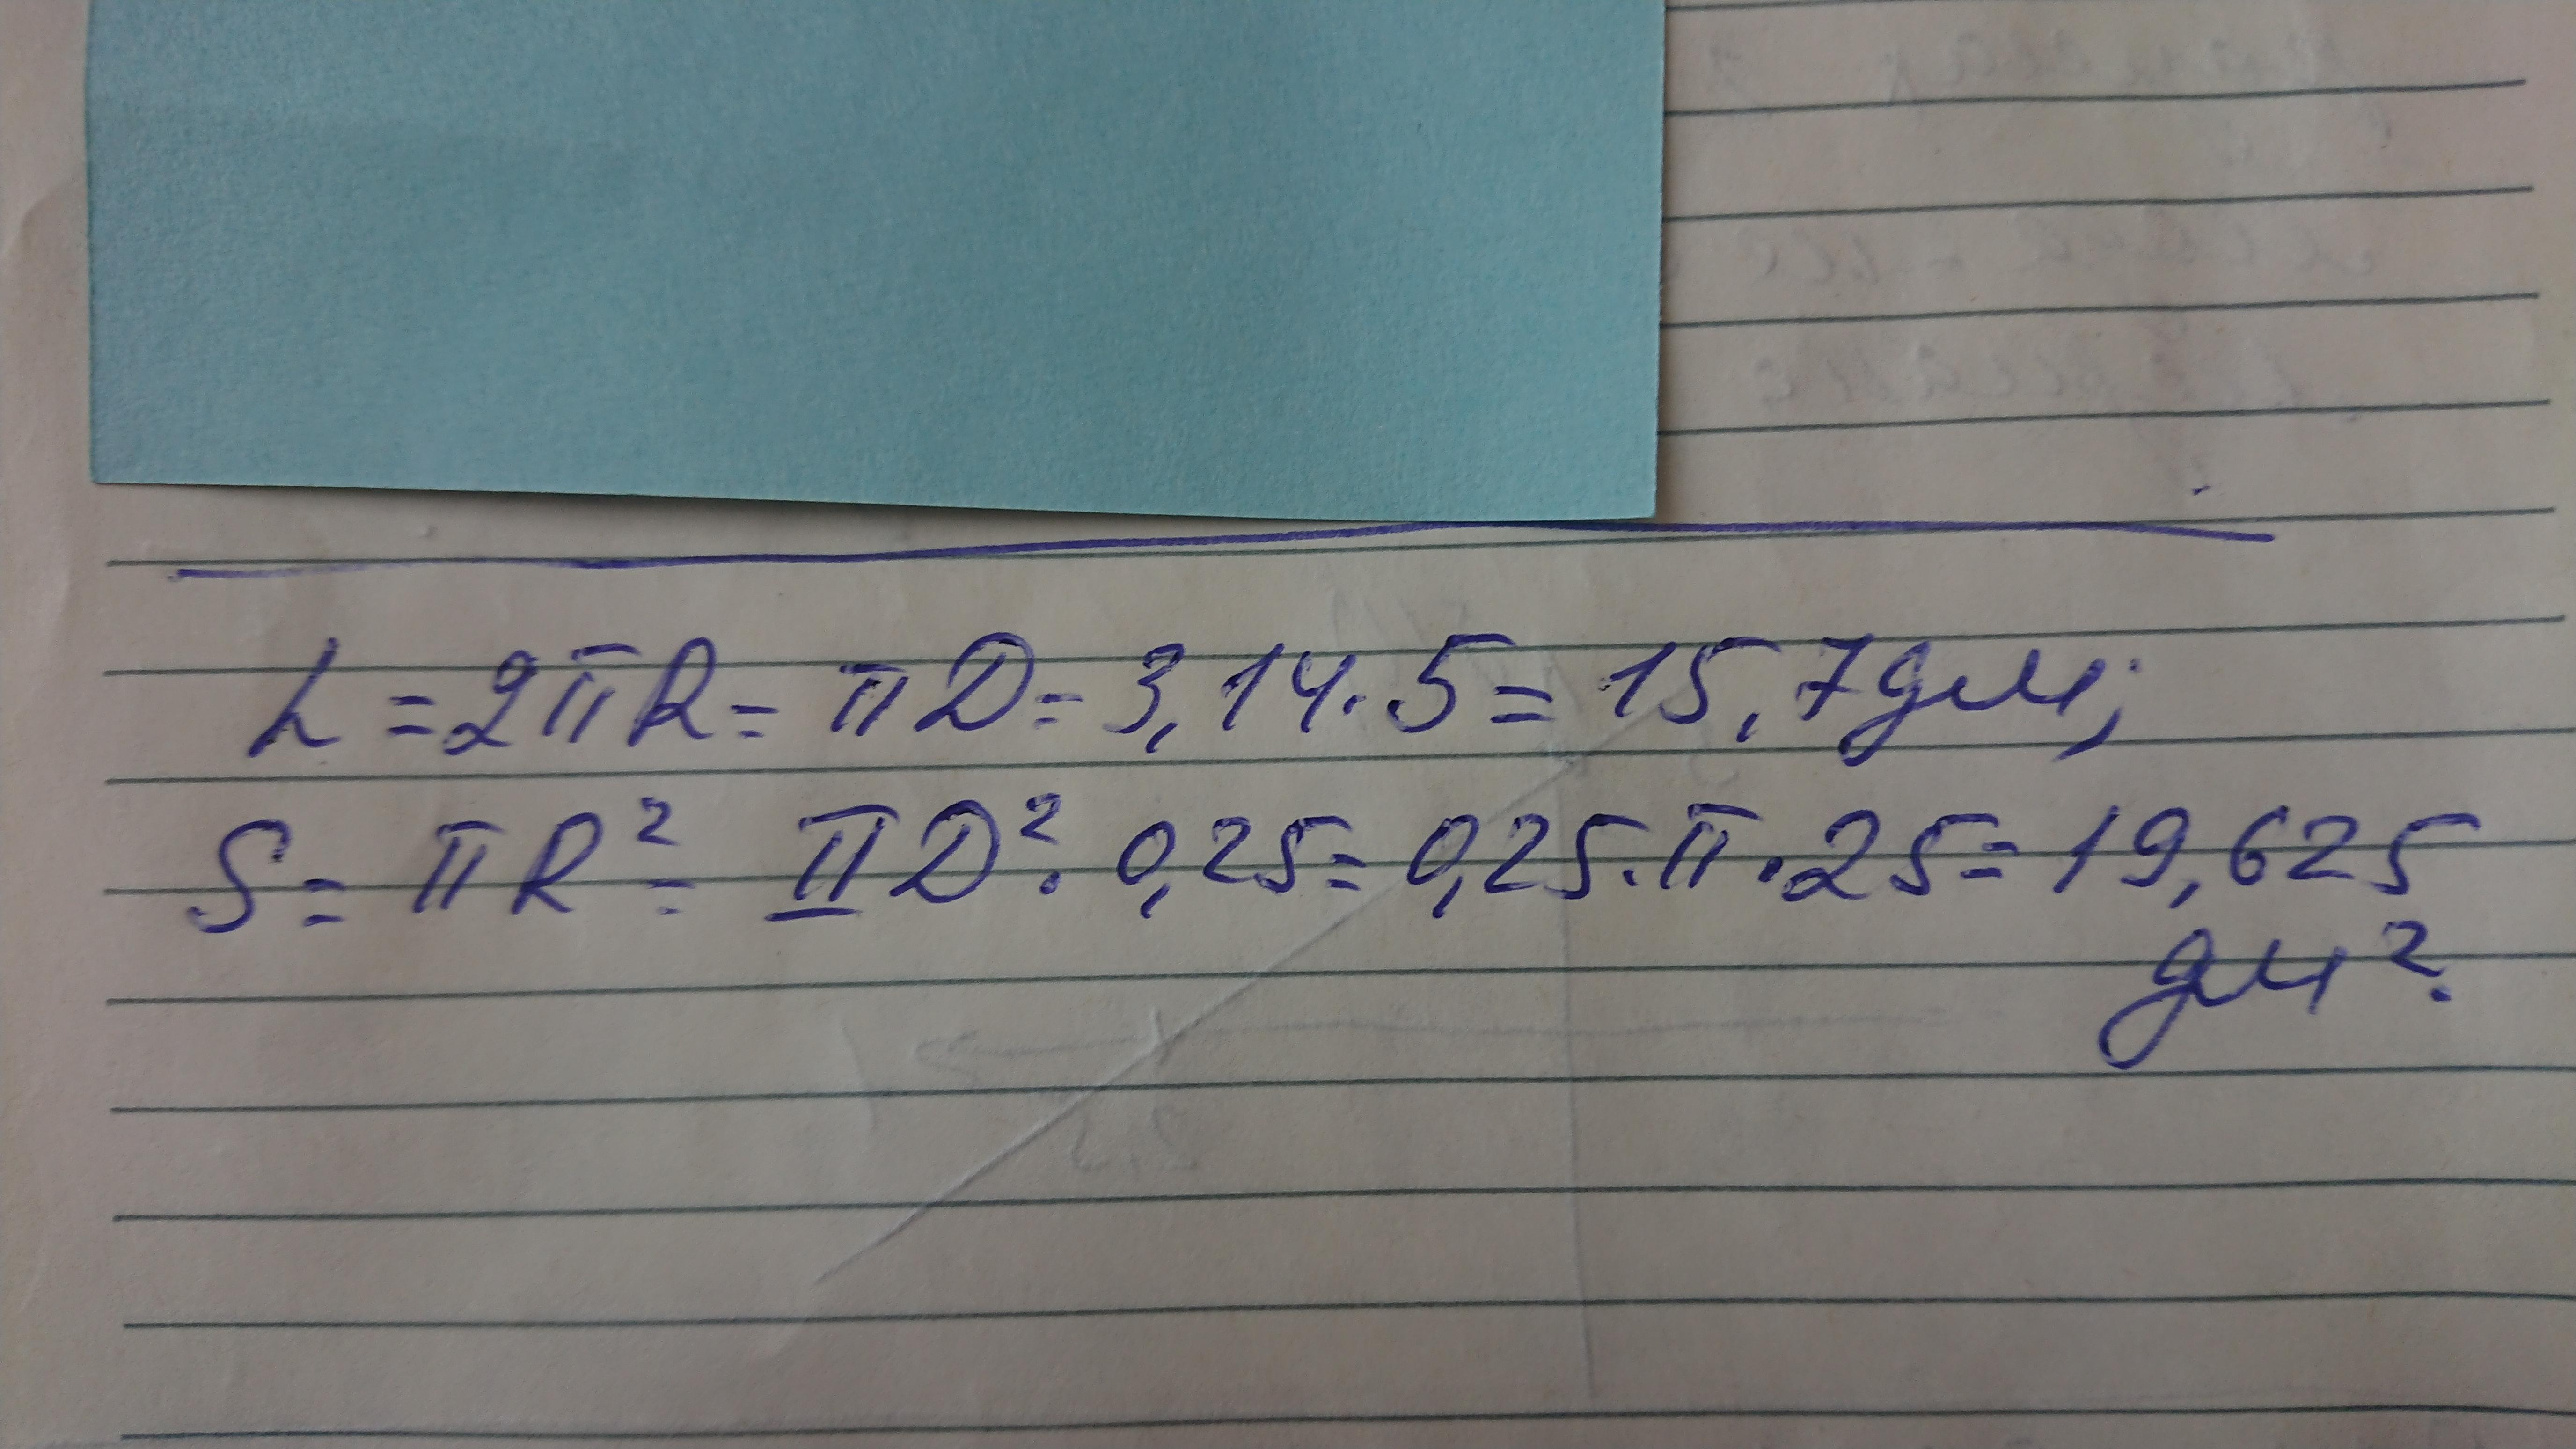 L = 2πR = πD = 3,14 · 5 = 15,7 дм;
S = πR² = πD² · 0,25 = 0,25 · π · 25 = 19,625
дм².